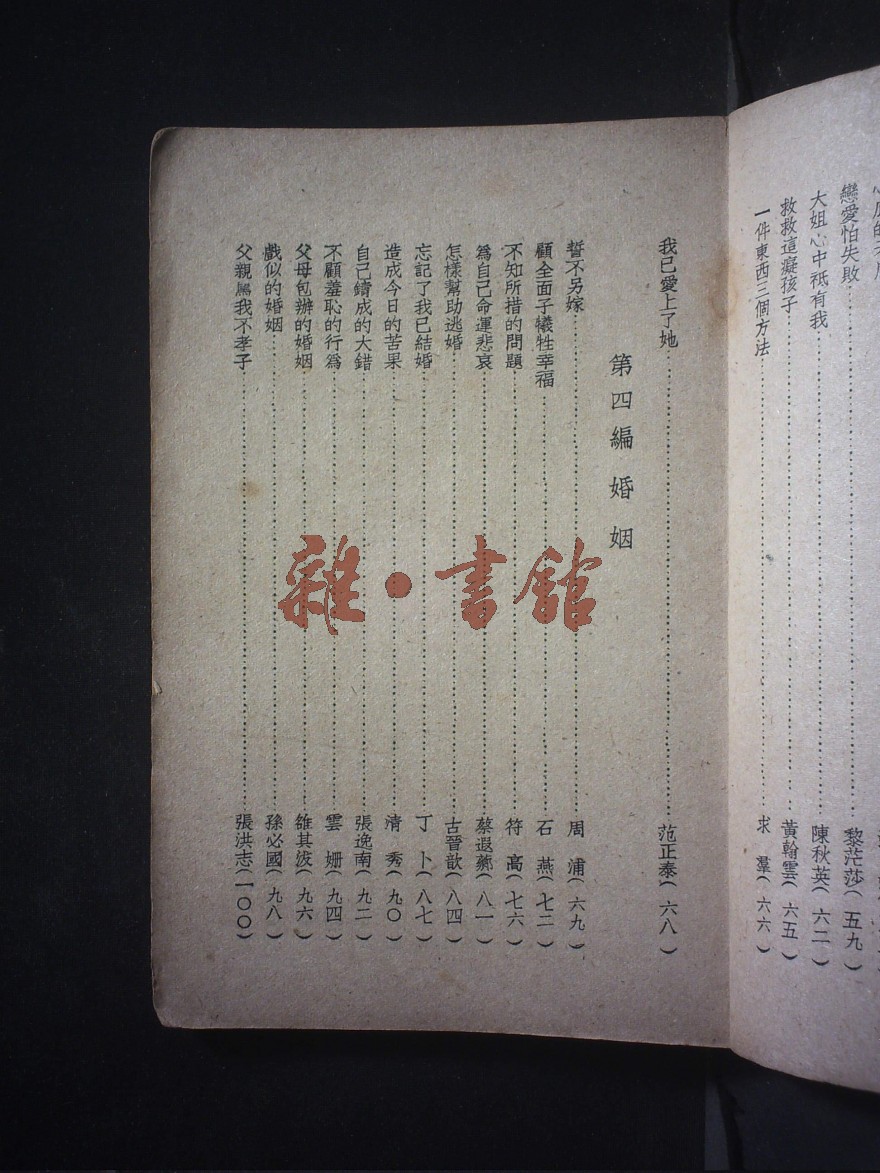 戀愛怕失敗……黎茫莎（五九）
大姐心中祗有我……陳秋英（六二）
救救這癡孩子……黃翰雲（六五）
一件東西三個方法……求羣（六六）
我已愛上了她……范正泰（六八）
第四編 婚姻
誓不另嫁……周浦（六九）
顧全面子犧牲幸福……石燕（七二）
不知所措的問題……符高（七六）
爲自己命運悲哀……蔡遐（八一）
怎樣幫助逃婚……古晉歆（八四）
忘記了我已結婚……丁卜（八七）
造成今日的苦果……清秀（九〇）
自己鑄成的大錯……張逸南（九二）
不顧羞恥的行爲……雲姍（九四）
父母包辦的婚姻……其波（九六）
戲似的婚姻……孫必國（九八）
父親駡我不孝子……張洪志（一〇〇）
雜·書館